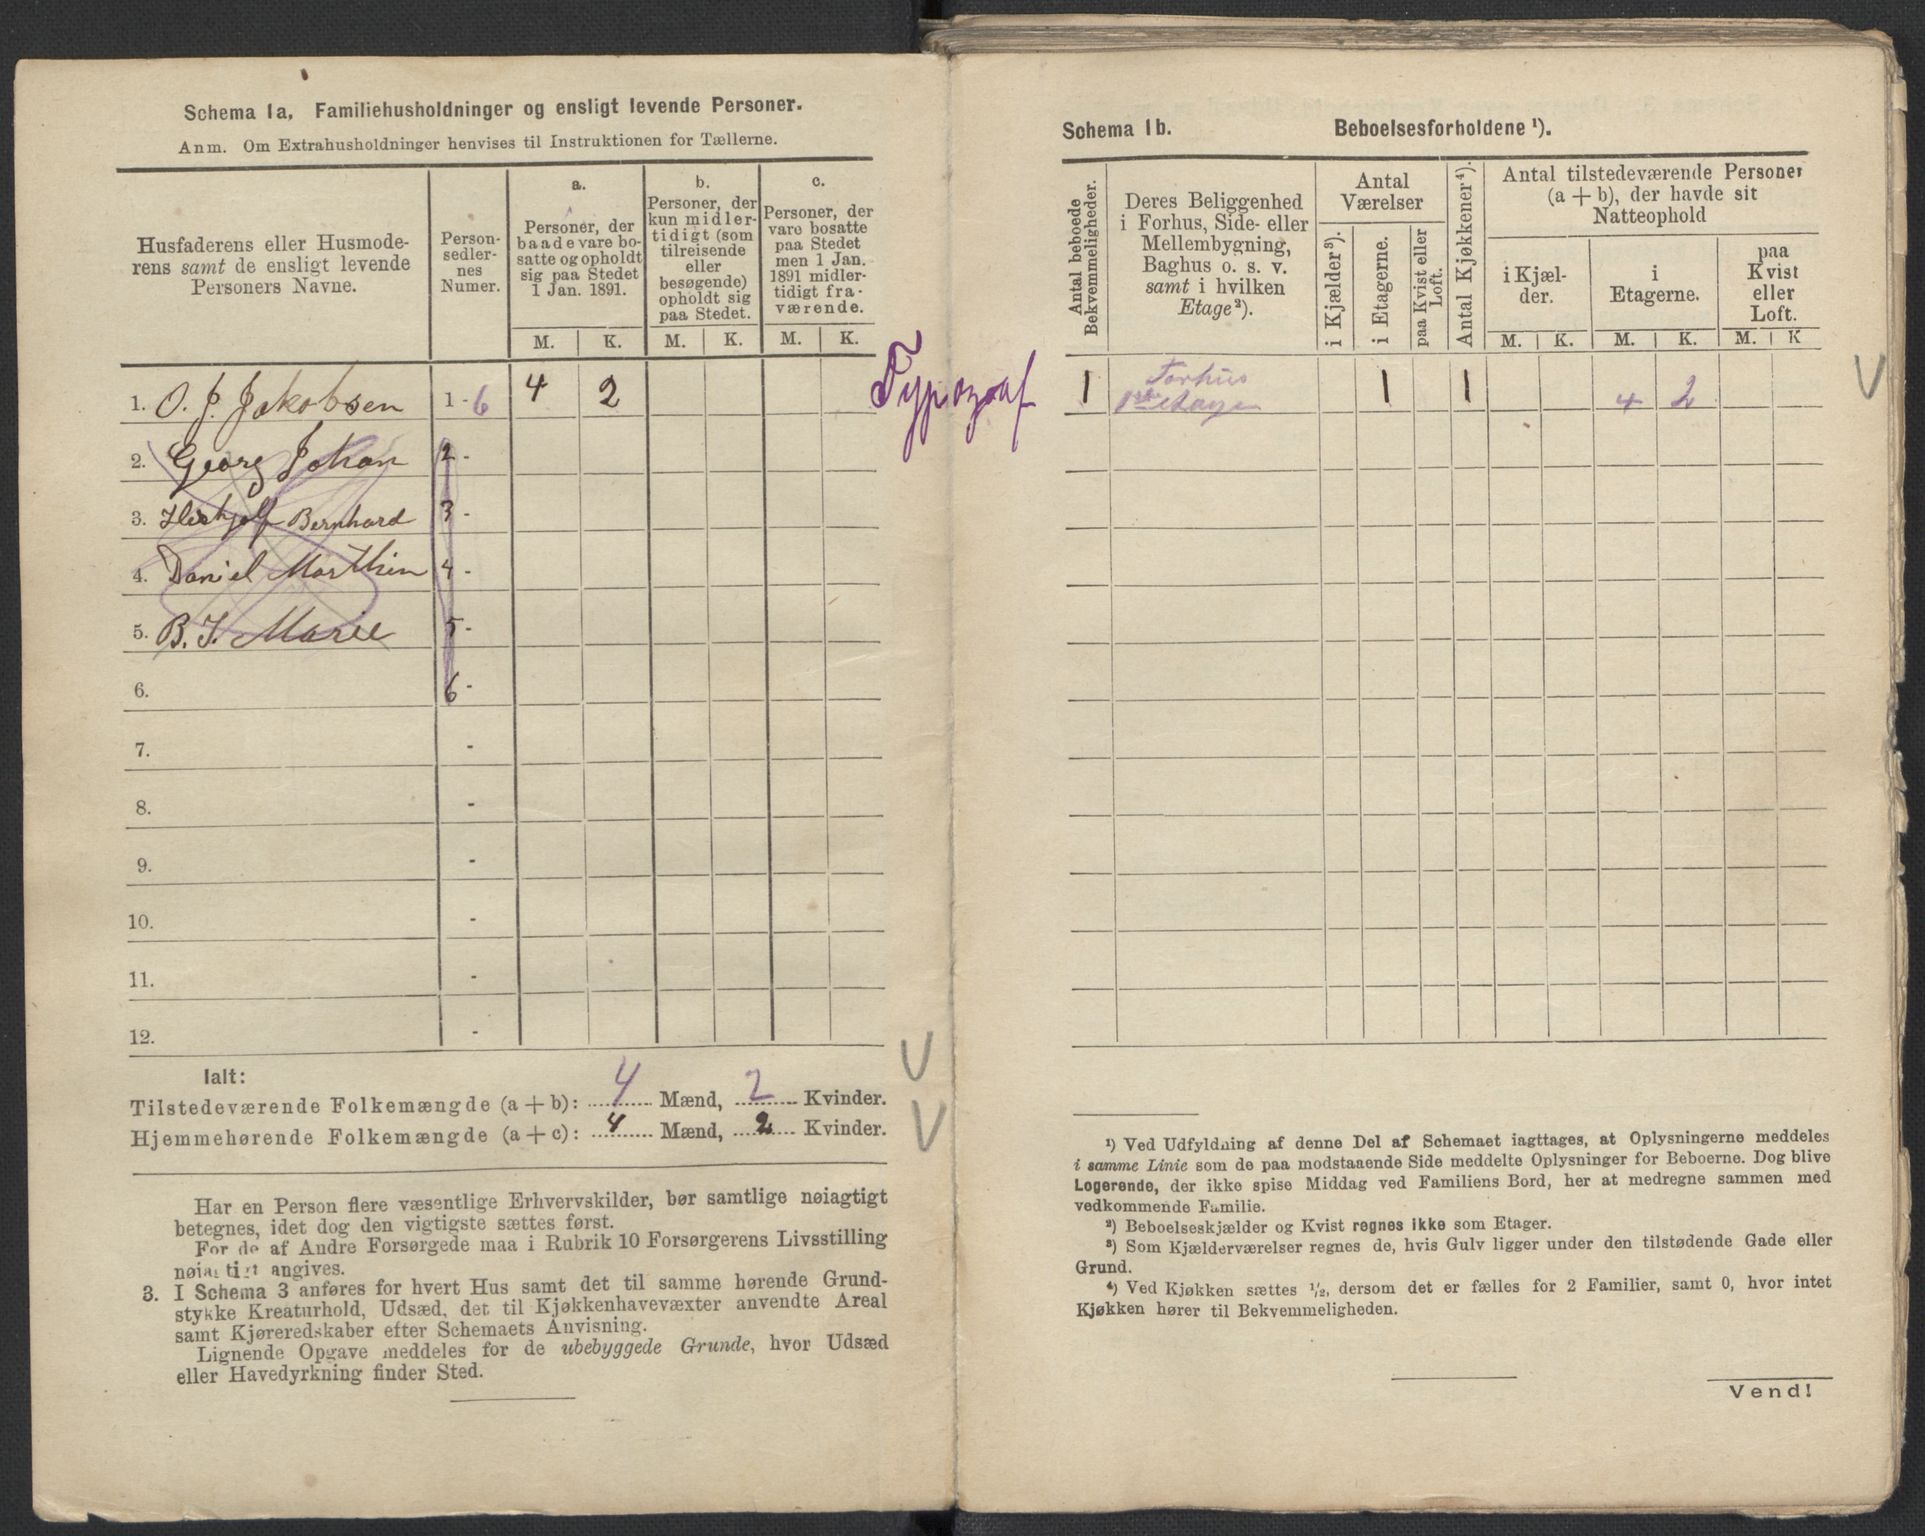 Schema 1a, Familiehusholdninger og ensligt levende Personer.
Anm. Om Extrahusholdninger henvises til Instruktionen for Tællerne.
Husfaderens eller Husmode-
rens samt de ensligt levende
Personers Navne.
Person-
sedler-
nes
Numer.
a.
Personer, der
baade vare bo-
satte og opholdt
sig paa Stedet
1 Jan. 1891.
b.
Personer, der
kun midler-
tidigt (som
tilreisende
eller
besøgende)
opholdt sig
paa Stedet.
c.
Personer, der
vare bosatte
paa Stedet
men 1 Jan.
1891 midler-
tidigt fra-
værende.
M. K. M. K. M. K.
1. O. J. Jakobsen 1-6 4 2
2. Georg Johan 2-
3. Bernhard 3-
4. Daniel Marthin 4-
5. B. J. Marie 5-
6. 6-
7. -
8. -
9. -
10. -
11. -
12. -
Ialt:
Tilstedeværende Folkemængde (a+b): 4 Mænd, 2 Kvinder.
Hjemmehørende Folkemængde (a+c): 4 Mænd, 2 Kvinder.
Har en Person flere væsentlige Erhvervskilder, bør samtlige nøiagtigt
betegnes, idet dog den vigtigste sættes først.
For de af Andre Forsørgede maa i Rubrik 10 Forsørgerens Livsstilling
nøiagtigt angives.
3. I Schema 3 anføres for hvert Hus samt det til samme hørende Grund-
stykke Kreaturhold, Udsæd, det til Kjøkkenhavevæxter anvendte Areal
samt Kjøreredskaber efter Schemaets Anvisning.
Lignende Opgave meddeles for de ubebyggede Grunde, hvor Udsæd
eller Havedyrkning finder Sted.
Schema 1b. Beboelsesforholdene ¹).
Antal beboede
Bekvemmeligheder.
Deres Beliggenhed
i Forhus, Side- eller
Mellembygning,
Baghus o. s. v.
samt i hvilken
Etage²).
Antal
Værelser
i Kjælder³).
i Etagerne.
paa Kvist eller
Loft.
Antal Kjøkkener⁴).
Antal tilstedeværende Personer
(a+b), der havde sit
Natteophold
i Kjæl-
der.
i
Etagerne.
paa
Kvist
eller
Loft.
M. K. M. K. M. K
1 Forhus 1 1 4 2
¹) Ved Udfyldning af denne Del af Schemaet iagttages, at Oplysningerne meddeles
i samme Linie som de paa modstaaende Side meddelte Oplysninger for Beboerne. Dog blive
Logerende, der ikke spise Middag ved Familiens Bord, her at medregne sammen med
vedkommende Familie.
²) Beboelseskjælder og Kvist regnes ikke som Etager.
³) Som Kjælderværelser regnes de, hvis Gulv ligger under den tilstødende Gade eller
Grund.
⁴) Ved Kjøkken sættes ½, dersom det er fælles for 2 Familier, samt 0, hvor intet
Kjøkken hører til Bekvemmeligheden.
Vend!